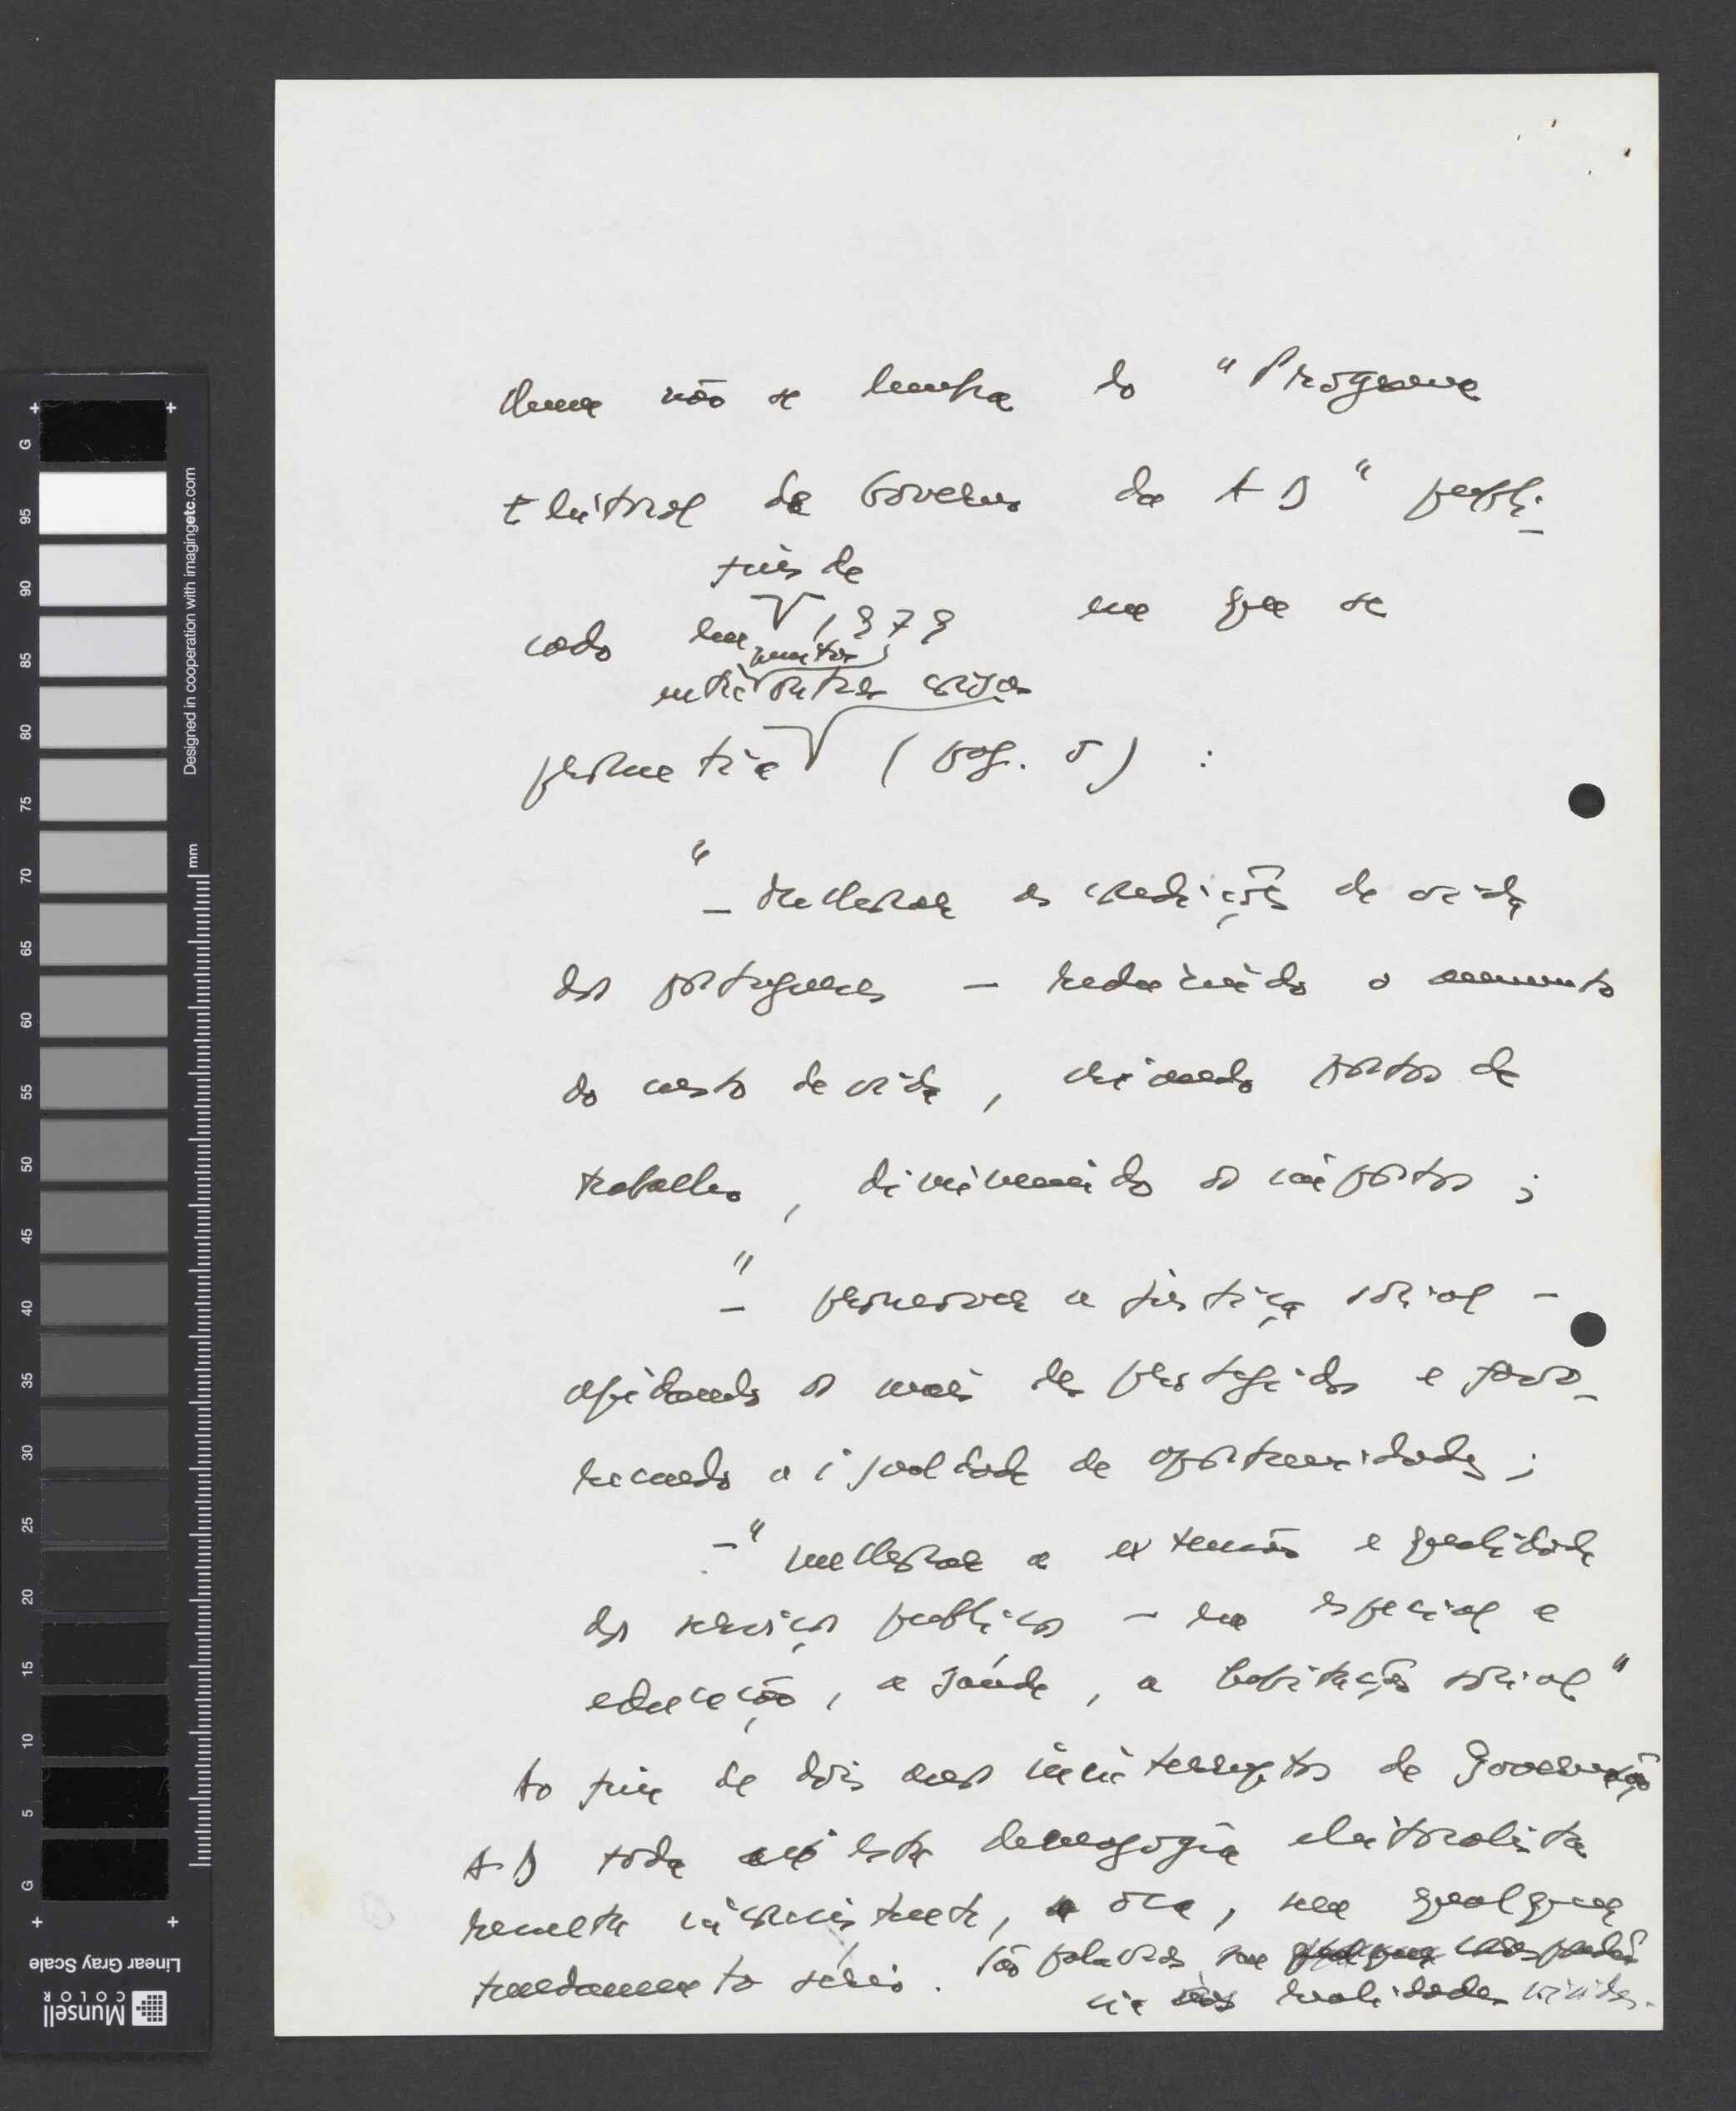 não se lembra do "Programa
Eleitoral de Governo da AD" publi-
cado em fins de 1979 em que se
prometia, entre muitas outras coisas, (pag. 5):
"- Melhorar as condições de vida
dos portugueses - reduzindo o aumento
do custo de vida, criando postos de
trabalho, diminuindo os impostos;
"- promover a justiça social -
apoiando os mais desprotegidos e favo-
recendo a igualdade de oportunidades;
-" melhorar a extensão e qualidade
dos serviços publicos - em especial a
educação, a saúde, a habitação social"
Ao fim de dois anos ininterruptos de governação
AD toda esta demagogia eleitoralista
resulta inconsistente, oca, sem qualquer
fundamento sério. São palavras sem correspondên-
cia nas realidades vividas.
G
95
90
85
80
75
70
65
60
55
50
45
40
35
30
25
20
15
10
5
G
mm
Designed in cooperation with imagingetc.com
Linear Gray Scale
Munsell
COLOR